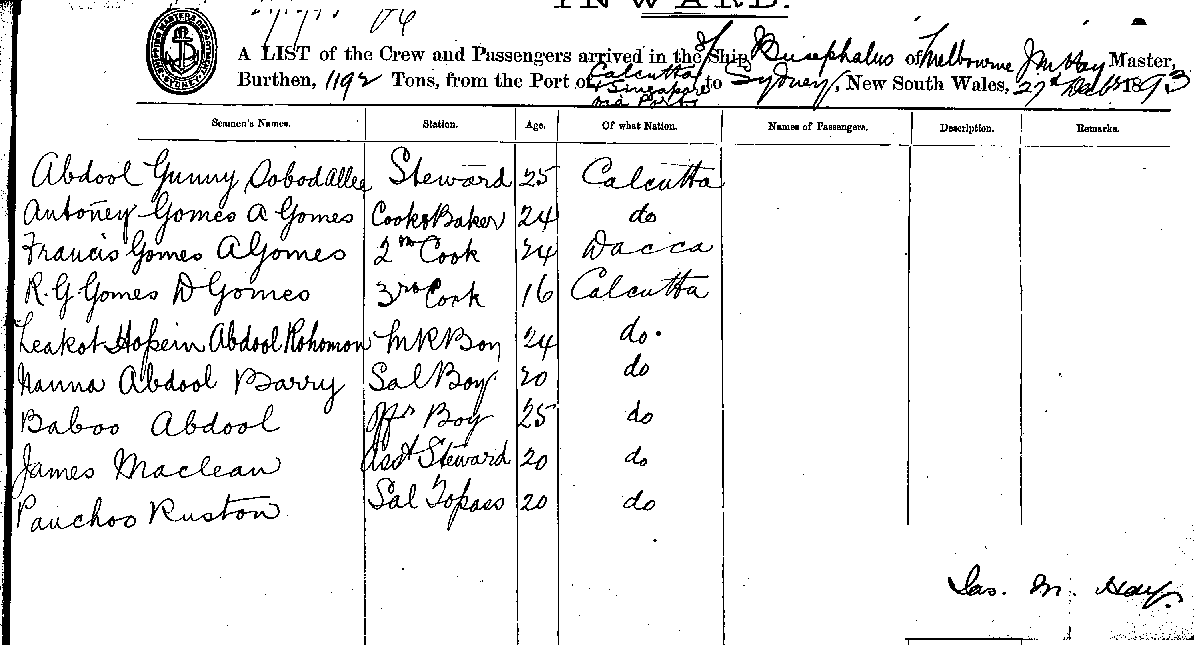 INWARD.
A LIST of the Crew and Passengers arrived in the Ship Bucephalus of Melbourne J M Hay Master,
Burthen, 1192 Tons, from the Port of Calcutta Singapore via Ports to Sydney, New South Wales, 27th Decbr 1893
Seamen's Names. Station. Age. Of what Nation. Names of Passengers. Description. Remarks.
Abdool Gunny Sobodallee Steward 25 Calcutta
Antoney Gomes A Gomes Cook & Baker 24 do
Francis Gomes A Gomes 2nd Cook 24 Dacca
R. G Gomes D Gomes 3rd Cook 16 Calcutta
Leakot Hosein Abdool Rohomon M R Boy 24 do.
Nanna Abdool Barry Sal Boy 20 do
Baboo Abdool Offr Boy 25 do
James Maclean Asst Steward 20 do
Panchoo Ruston Sal Topass 20 do
Jas. M. Hay.